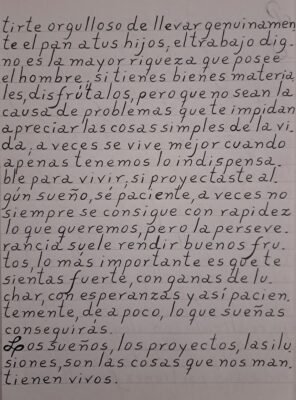 tirte orgulloso de llevar genuinamen
te el pan a tus hijos, el trabajo dig_
no, es la mayor riqueza que posee
el hombre; si tienes bienes materia_
les, disfrútalos, pero que no sean la
causa de problemas que te impidan
apreciar las cosas simples de la vi_
da, a veces se vive mejor cuando
apenas tenemos lo indispensa_
ble para vivir, si proyectaste al_
gún sueño, sé paciente, a veces no
siempre se consigue con rapidez
lo que queremos, pero la perseve_
rancia suele rendir buenos fru_
tos, lo más importante es que te
sientas fuerte, con ganas de lu_
char, con esperanzas y así pacien_
temente, de a poco, lo que sueñas
conseguirás.
Los sueños, los proyectos, las ilu_
siones, son las cosas que nos man_
tienen vivos.